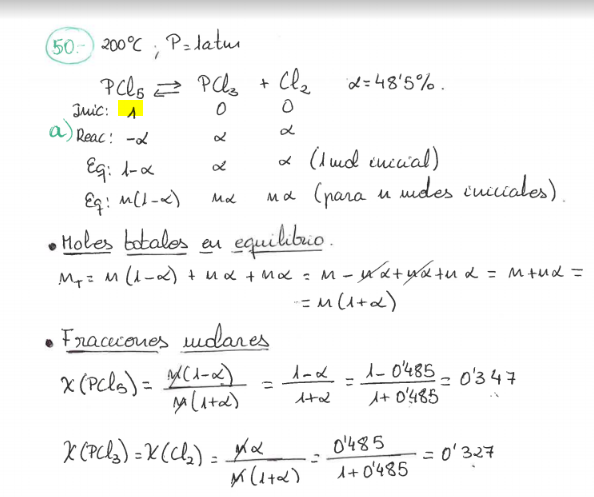 50.- 200°C ; P=1atm
PCl₅ ⇄ PCl₃ + Cl₂ α=48'5%.
Inic: 1 0 0
a) Reac: -α α α
Eq: 1-α α α (1 mol inicial)
Eq: n(1-α) nα nα (para n moles iniciales).
• Moles totales en equilibrio.
n_T = n(1-α) + nα + nα = n - nα + nα + nα = n + nα =
= n(1+α)
• Fracciones molares
X(PCl₅) = n(1-α) / n(1+α) = 1-α / 1+α = 1-0'485 / 1+0'485 = 0'347
X(PCl₃) = X(Cl₂) = nα / n(1+α) = 0'485 / 1+0'485 = 0'327